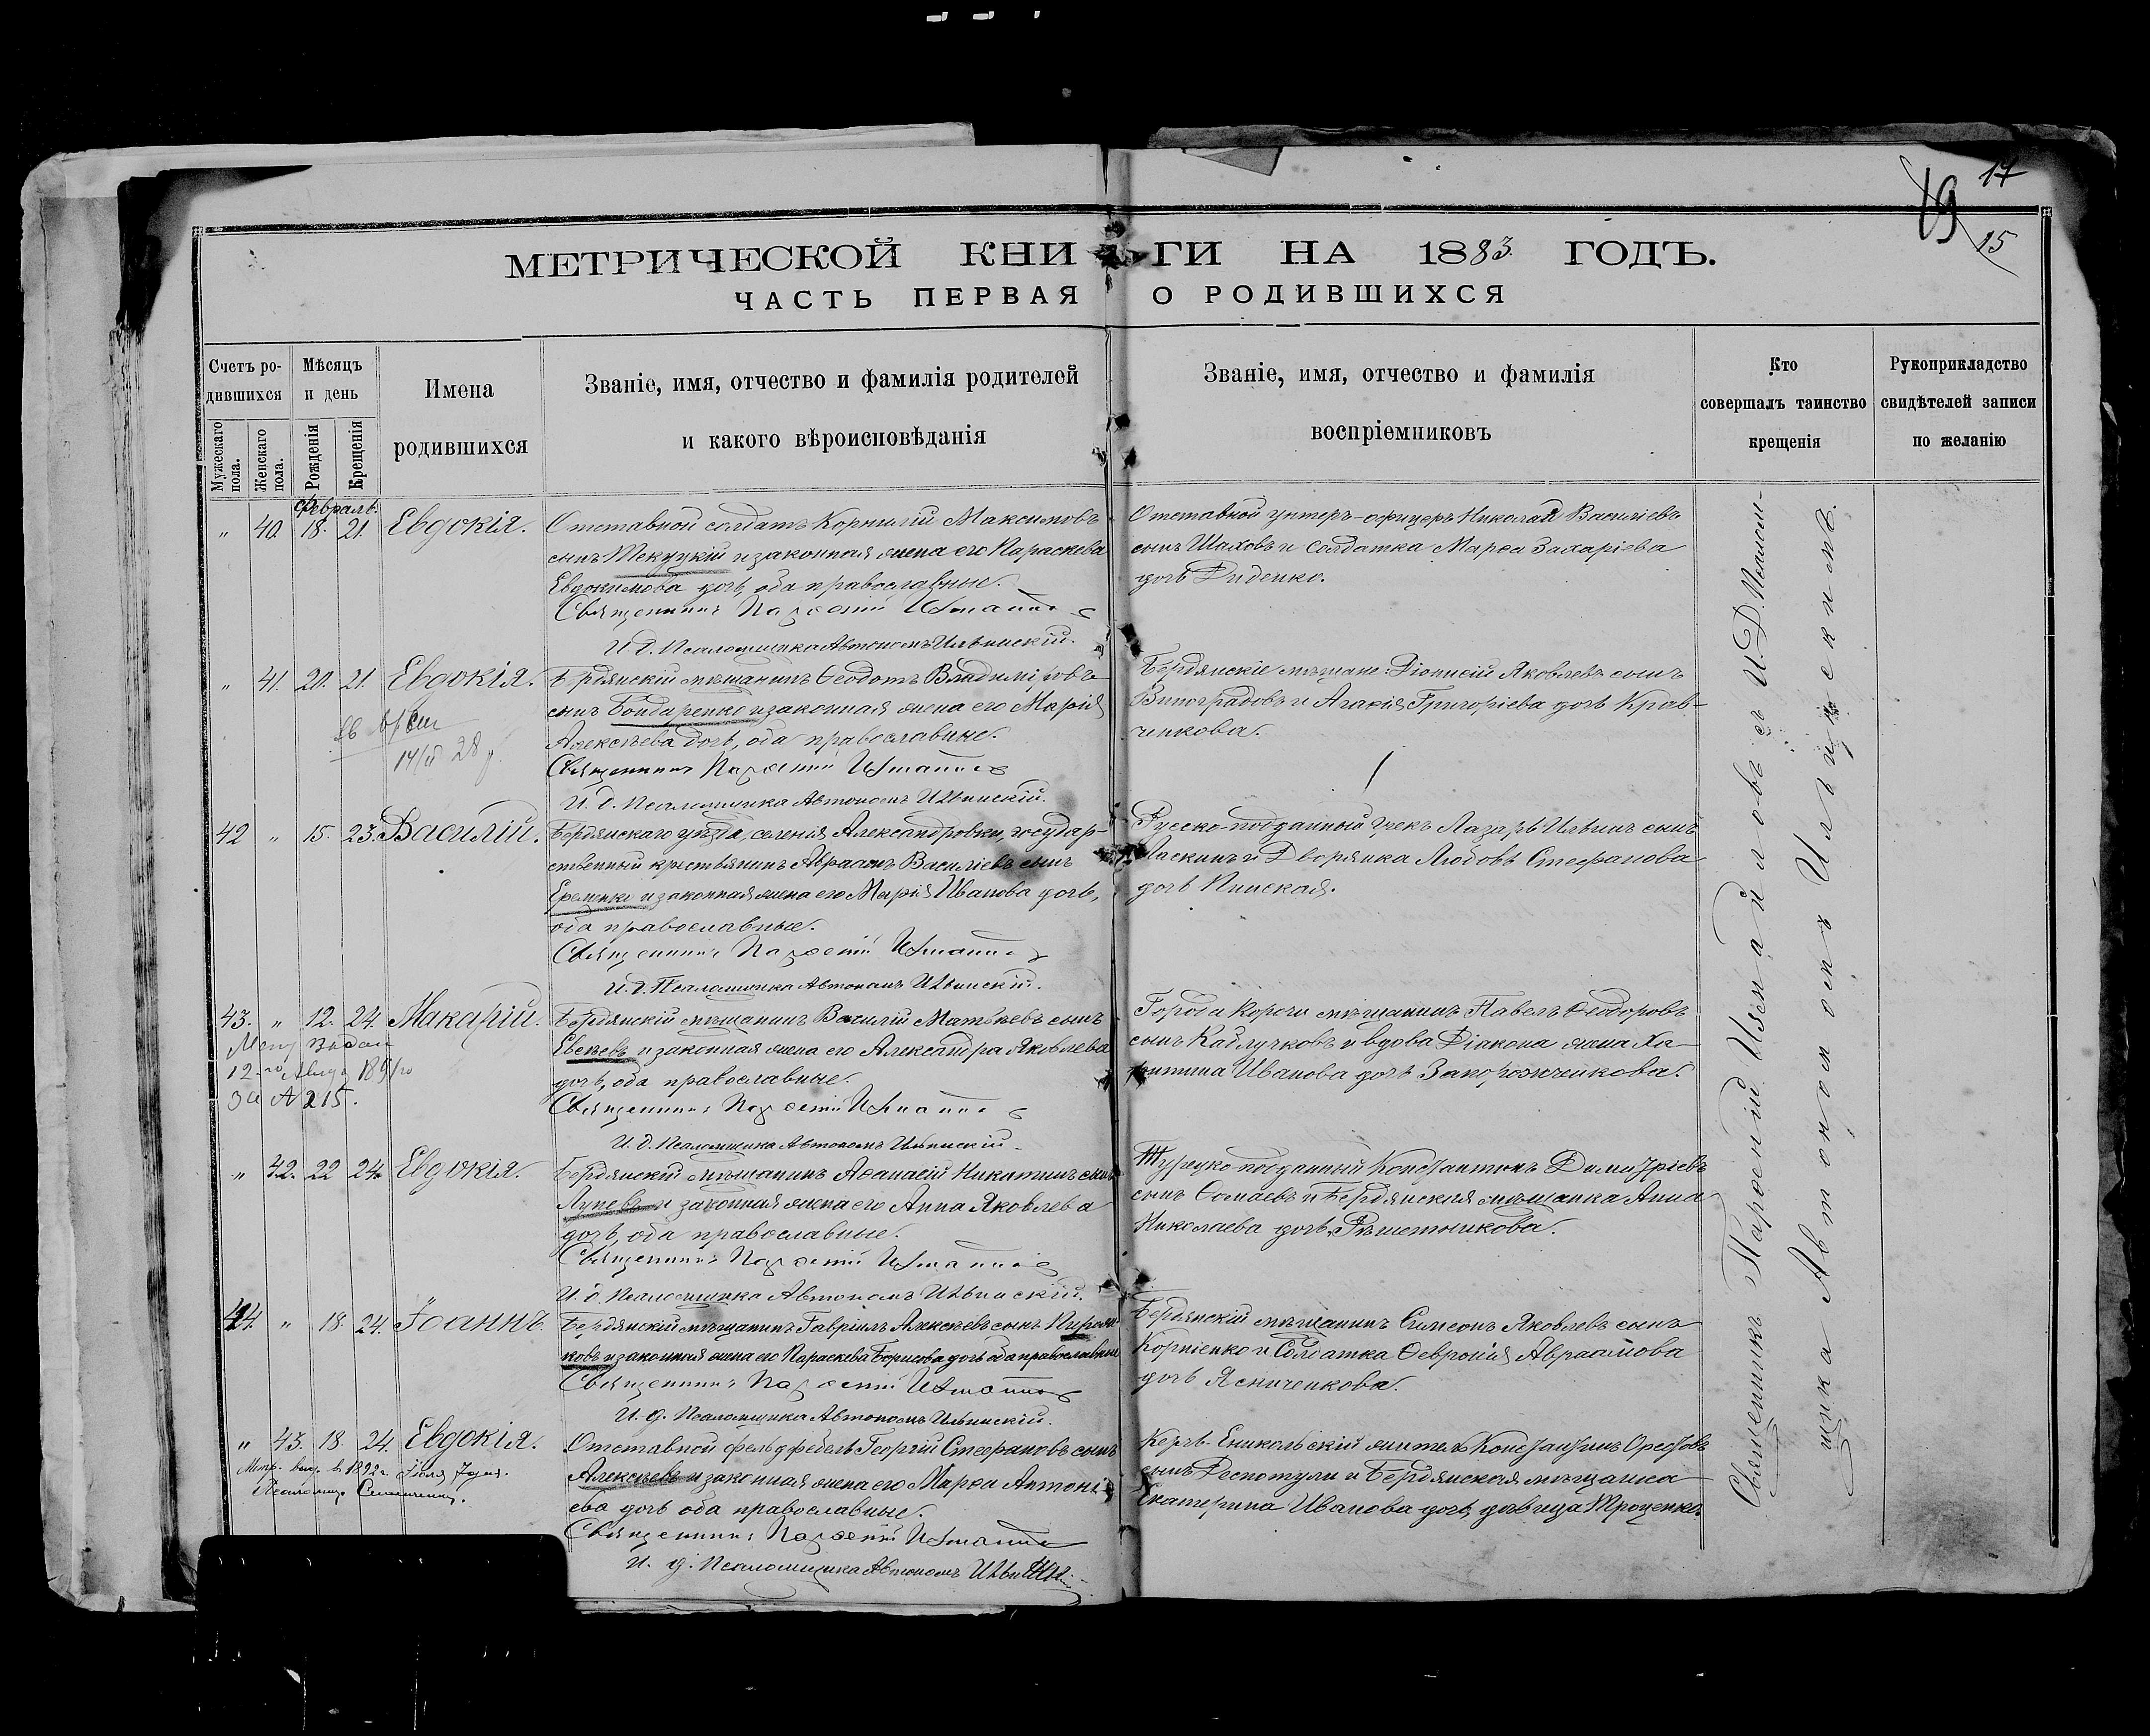 17
15
МЕТРИЧЕСКОЙ КНИГИ НА 1883 ГОДЪ.
ЧАСТЬ ПЕРВАЯ О РОДИВШИХСЯ
Счетъ ро-
дившихся
Мужескаго пола.
Женскаго пола.
Мѣсяцъ
и день
Рожденія
Крещенія
Имена
родившихся
Званіе, имя, отчество и фамилія родителей
и какого вѣроисповѣданія
Званіе, имя, отчество и фамилія
воспріемниковъ
Кто
совершалъ таинство
крещенія
Рукоприкладство
свидѣтелей записи
по желанію
Февраль.
" 40. 18. 21. Евдокія.
Отставной солдатъ Корнилій Максимовъ
сынъ Текуцкій и законная жена его Параскева
Евдокимова дочь, оба православные.
Священникъ Парѳеній
И. д. Псаломщика Автономъ Ильинскій.
Отставной унтеръ-офицеръ Николай Василіевъ
сынъ Шаховъ и Солдатка Марѳа Захаріева
дочь Диденко.
" 41. 20. 21. Евдокія.
Бердянскій мѣщанинъ Ѳеодотъ Владиміровъ
сынъ Бондаренко и законная жена его Марія
Алексѣева дочь, оба православные.
Священникъ Парѳеній
И. д. Псаломщика Автономъ Ильинскій.
Бердянскіе мѣщане: Діонисій Яковлевъ сынъ
Виноградовъ и Агаѳія Григоріева дочь Крав-
ченкова.
42 " 15. 23. Василій.
Бердянскаго уѣзда, селенія Александровки, государ-
ственный крестьянинъ Авраамъ Василіевъ сынъ
Еременко и законная жена его Марія Иванова дочь,
оба православные.
Священникъ Парѳеній
И. д. Псаломщика Автономъ Ильинскій.
Русско-подданный грекъ Лазарь Ильинъ сынъ
Ласкинъ и Дворянка Любовь Стефанова
дочь Пинская.
43. " 12. 24. Макарій.
12-го 189
за № 215.
Бердянскій мѣщанинъ Василій Матвѣевъ сынъ
Евсѣевъ и законная жена его Александра Яковлева
дочь, оба православные.
Священникъ Парѳеній
И. д. Псаломщика Автономъ Ильинскій.
Города Корочи мѣщанинъ Павелъ Ѳеодоровъ
сынъ Кадлучковъ и вдова Діакона жена Ха-
ритина Иванова дочь Запорожченкова.
" 42. 22 24. Евдокія.
Бердянскій мѣщанинъ Аѳанасій Никитинъ сынъ
Луневъ и законная жена его Анна Яковлева
дочь, оба православные.
Священникъ Парѳеній
И. д. Псаломщика Автономъ Ильинскій.
Турецко-подданный Константинъ Димитріевъ
сынъ и Бердянская мѣщанка Анна
Николаева дочь Рѣшетникова.
44. " 18. 24. Іоаннъ.
Бердянскій мѣщанинъ Гавріилъ Алексѣевъ сынъ
ковъ и законная жена его Параскева Борисова дочь оба православные
Священникъ Парѳеній
И. д. Псаломщика Автономъ Ильинскій.
Бердянскій мѣщанинъ Симеонъ Яковлевъ сынъ
Корніенко и Солдатка Ѳевронія Авраамова
дочь Ясниченкова.
" 43. 18. 24. Евдокія.
Метр. выд. в 1892 г. Іюля 7 дня.
Псаломщ.
Отставной фельдфебель Георгій Стефановъ сынъ
Алексѣевъ и законная жена его Марѳа Антоні-
ева дочь оба православные.
Священникъ Парѳеній
И. д. Псаломщика Автономъ Ильинскій
Керчь-Еникольскій житель Константинъ Орестовъ
сынъ Деспотули и Бердянская мѣщанка
Екатерина Иванова дочь, дѣвица Троценко.
Священникъ Парѳеній съ И. Д. Псалом-
щика Автономомъ Ильинскимъ.